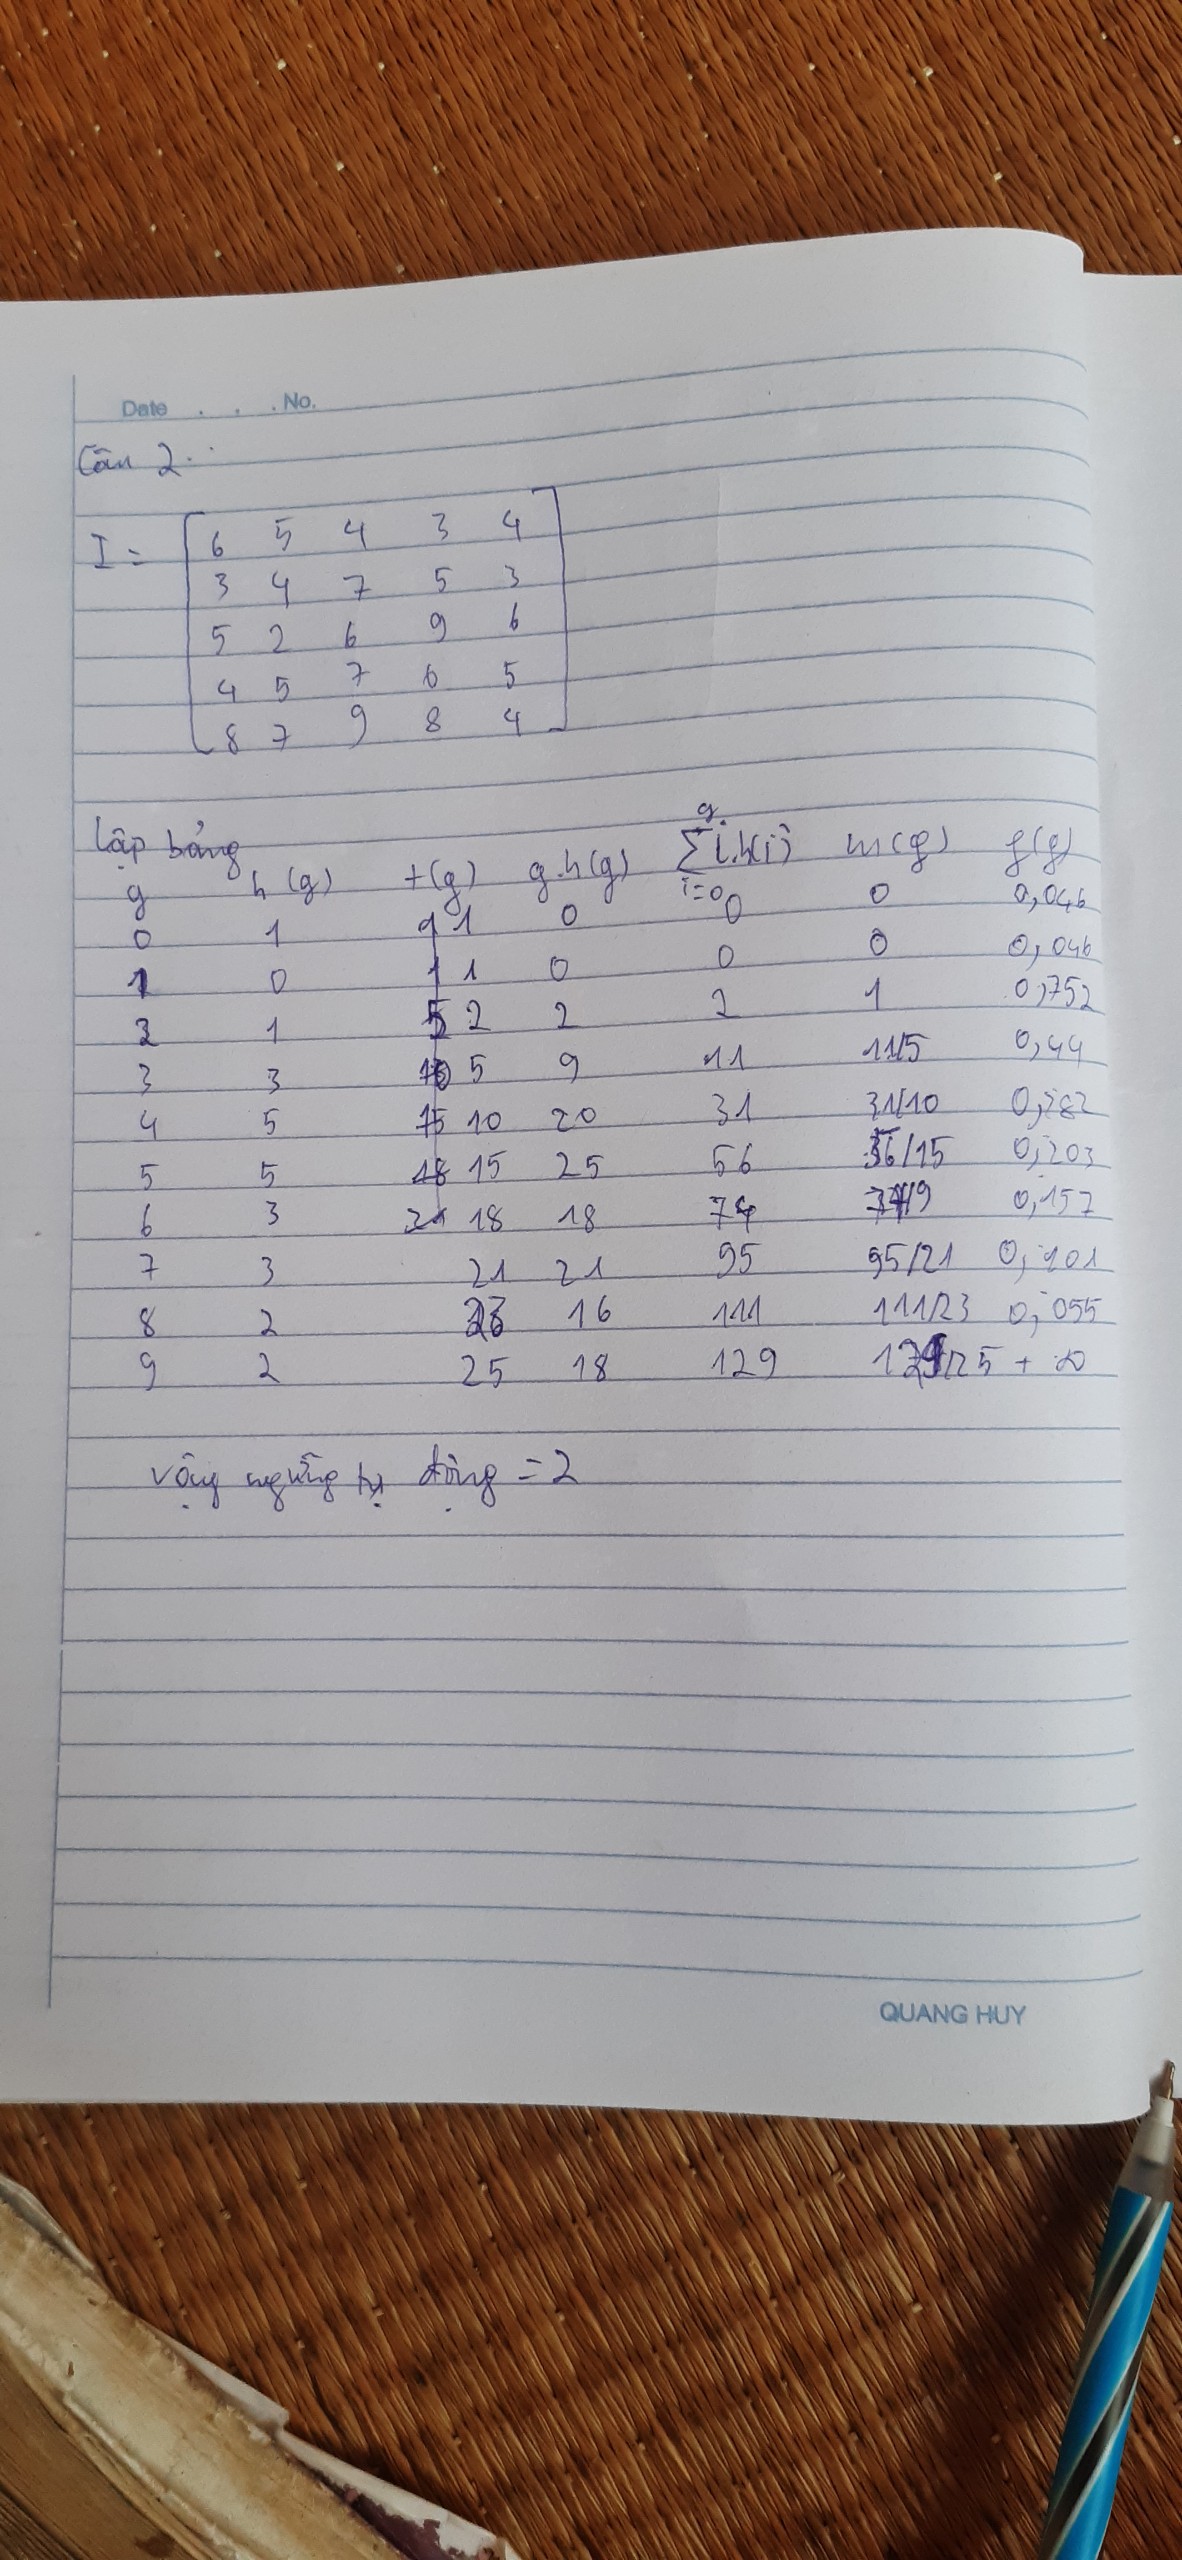 Date . . . No.
Câu 2.
I =
6 5 4 3 4
3 4 7 5 3
5 2 6 9 6
4 5 7 6 5
8 7 9 8 4
Lập bảng
g h(g) t(g) g.h(g) g∑i=0 i.h(i) m(g) f(g)
0 1 1 0 0 0 0,046
1 0 1 0 0 0 0,046
2 1 2 2 2 1 0,752
3 3 5 9 11 11/5 0,44
4 5 10 20 31 31/10 0,282
5 5 15 25 56 56/15 0,203
6 3 18 18 74 37/9 0,157
7 3 21 21 95 95/21 0,101
8 2 23 16 111 111/23 0,055
9 2 25 18 129 129/25 + ∞
Vậy ngưỡng tự động = 2
QUANG HUY